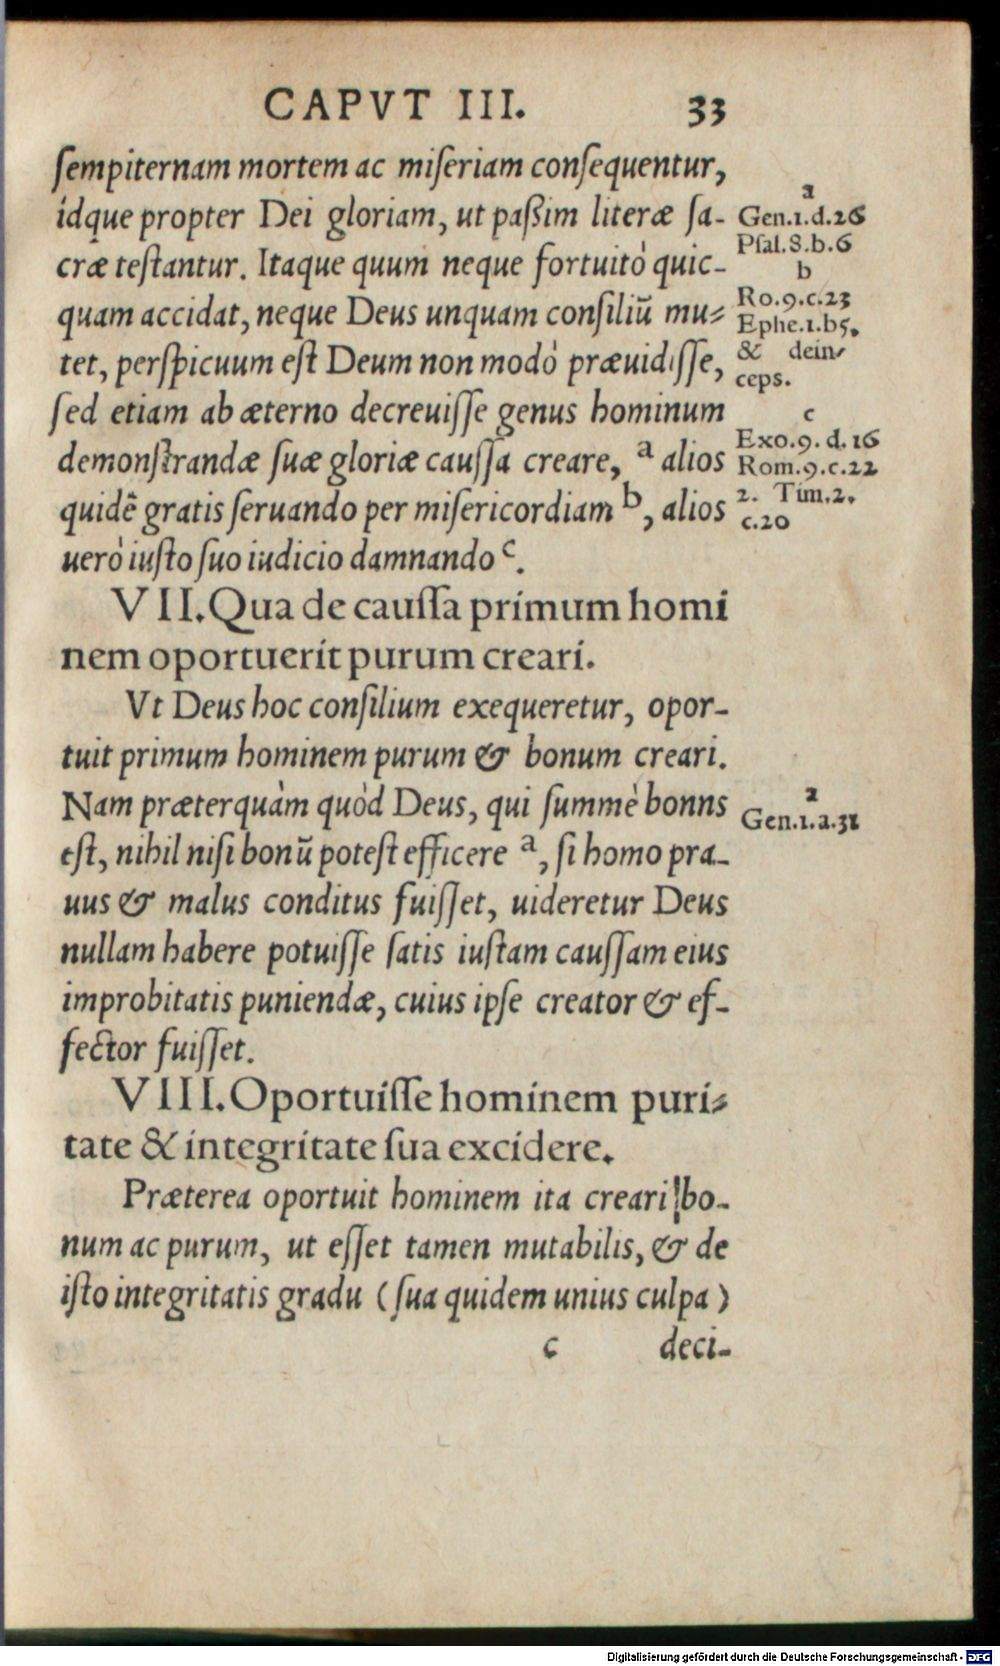 CAPVT III. 33
sempiternam mortem ac miseriam consequentur,
idque propter Dei gloriam, ut paßim literæ sa-
cræ testantur. Itaque quum neque fortuitò quic-
quam accidat, neque Deus unquam consiliū mu-
tet, perspicuum est Deum non modò præuidisse,
sed etiam ab æterno decreuisse genus hominum
demonstrandæ suæ gloriæ caussa creare, a alios
quidē gratis seruando per misericordiam b, alios
uerò iusto suo iudicio damnando c.
a
Gen.1.d.26
Psal.8.b.6
b
Ro.9.c.23
Ephe.1.b5.
& dein-
ceps.
c
Exo.9.d.16
Rom.9.c.22
2. Tim.2.
c.20
VII. Qua de caussa primum homi
nem oportuerit purum creari.
Vt Deus hoc consilium exequeretur, opor-
tuit primum hominem purum & bonum creari.
Nam præterquàm quòd Deus, qui summè bonns
est, nihil nisi bonū potest efficere a, si homo pra-
uus & malus conditus fuisset, uideretur Deus
nullam habere potuisse satis iustam caussam eius
improbitatis puniendæ, cuius ipse creator & ef-
fector fuisset.
a
Gen.1.a.31
VIII. Oportuisse hominem puri-
tate & integritate sua excidere.
Præterea oportuit hominem ita creari bo-
num ac purum, ut esset tamen mutabilis, & de
isto integritatis gradu (sua quidem unius culpa)
c deci-
Digitalisierung gefördert durch die Deutsche Forschungsgemeinschaft - DFG